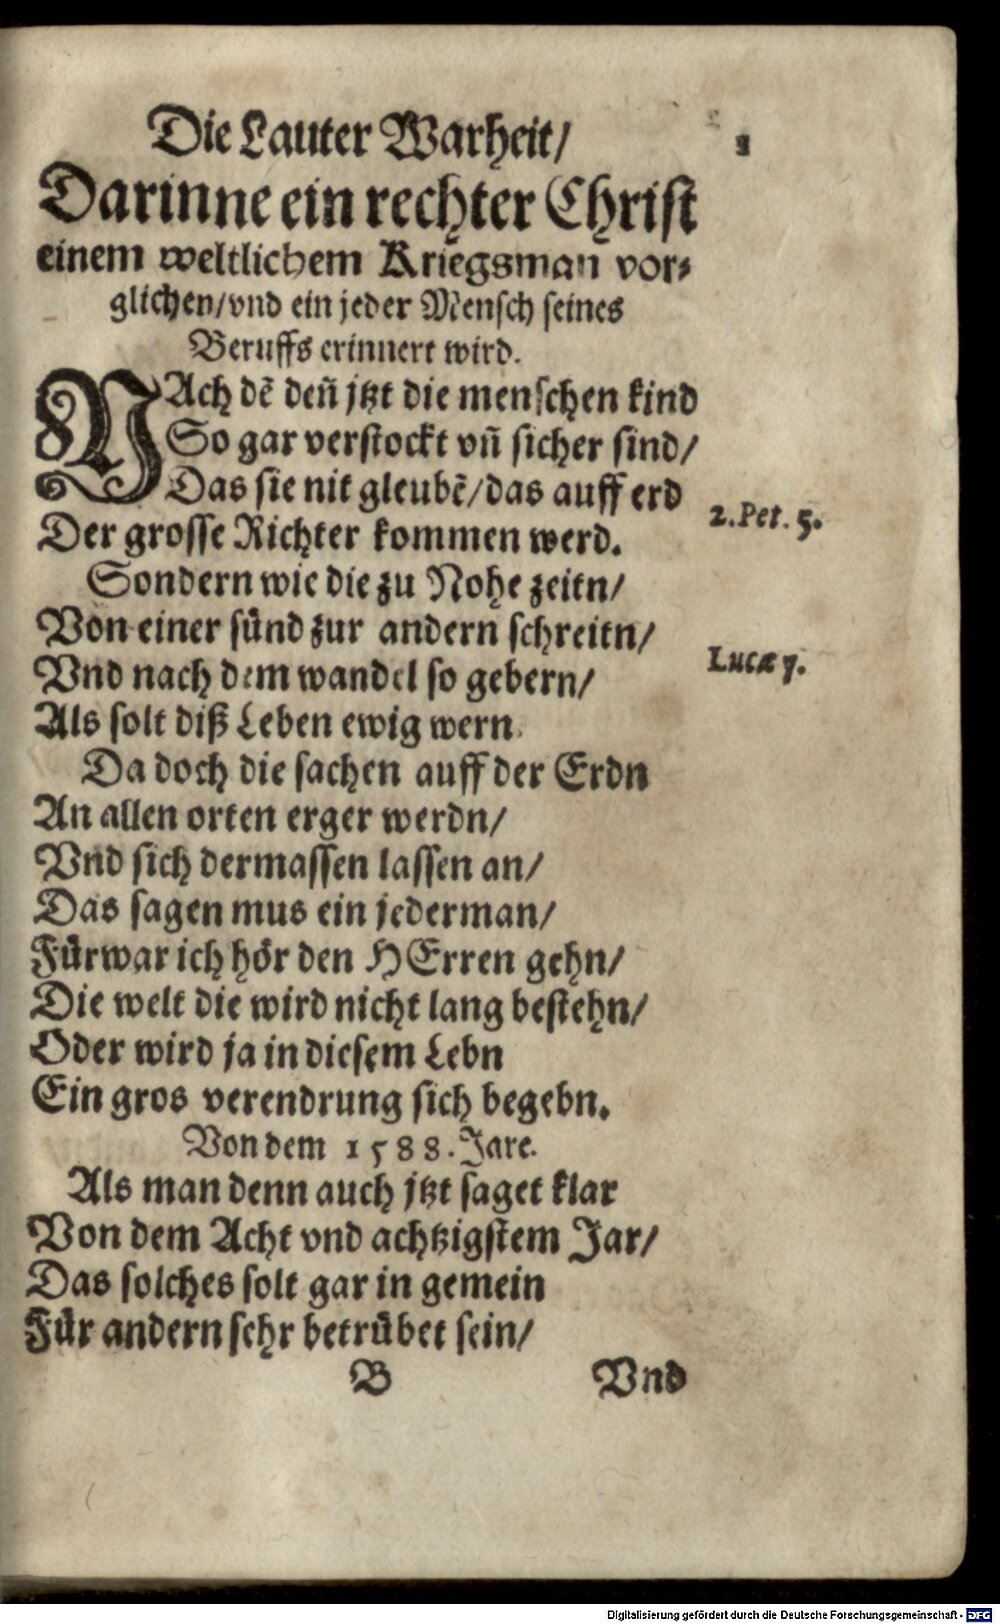 Die Lauter Warheit/
1
Darinne ein rechter Christ
einem weltlichem Kriegsman vor⸗
glichen/vnd ein jeder Mensch seines
Beruffs erinnert wird.
NAch dē deñ jtzt die menschen kind
So gar verstockt vñ sicher sind/
Das sie nit gleubē/das auff erd
2.Pet. 5.
Der grosse Richter kommen werd.
Sondern wie die zu Nohe zeitn/
Von einer sünd zur andern schreitn/
Lucæ 7.
Vnd nach dem wandel so gebern/
Als solt diß Leben ewig wern.
Da doch die sachen auff der Erdn
An allen orten erger werdn/
Vnd sich dermassen lassen an/
Das sagen mus ein jederman/
Fürwar ich hör den HErren gehn/
Die welt die wird nicht lang bestehn/
Oder wird ja in diesem Lebn
Ein gros verendrung sich begebn.
Von dem 1588. Jare.
Als man denn auch jtzt saget klar
Von dem Acht vnd achtzigstem Jar/
Das solches solt gar in gemein
Für andern sehr betrübet sein/
B Vnd
Digitalisierung gefördert durch die Deutsche Forschungsgemeinschaft - DFG